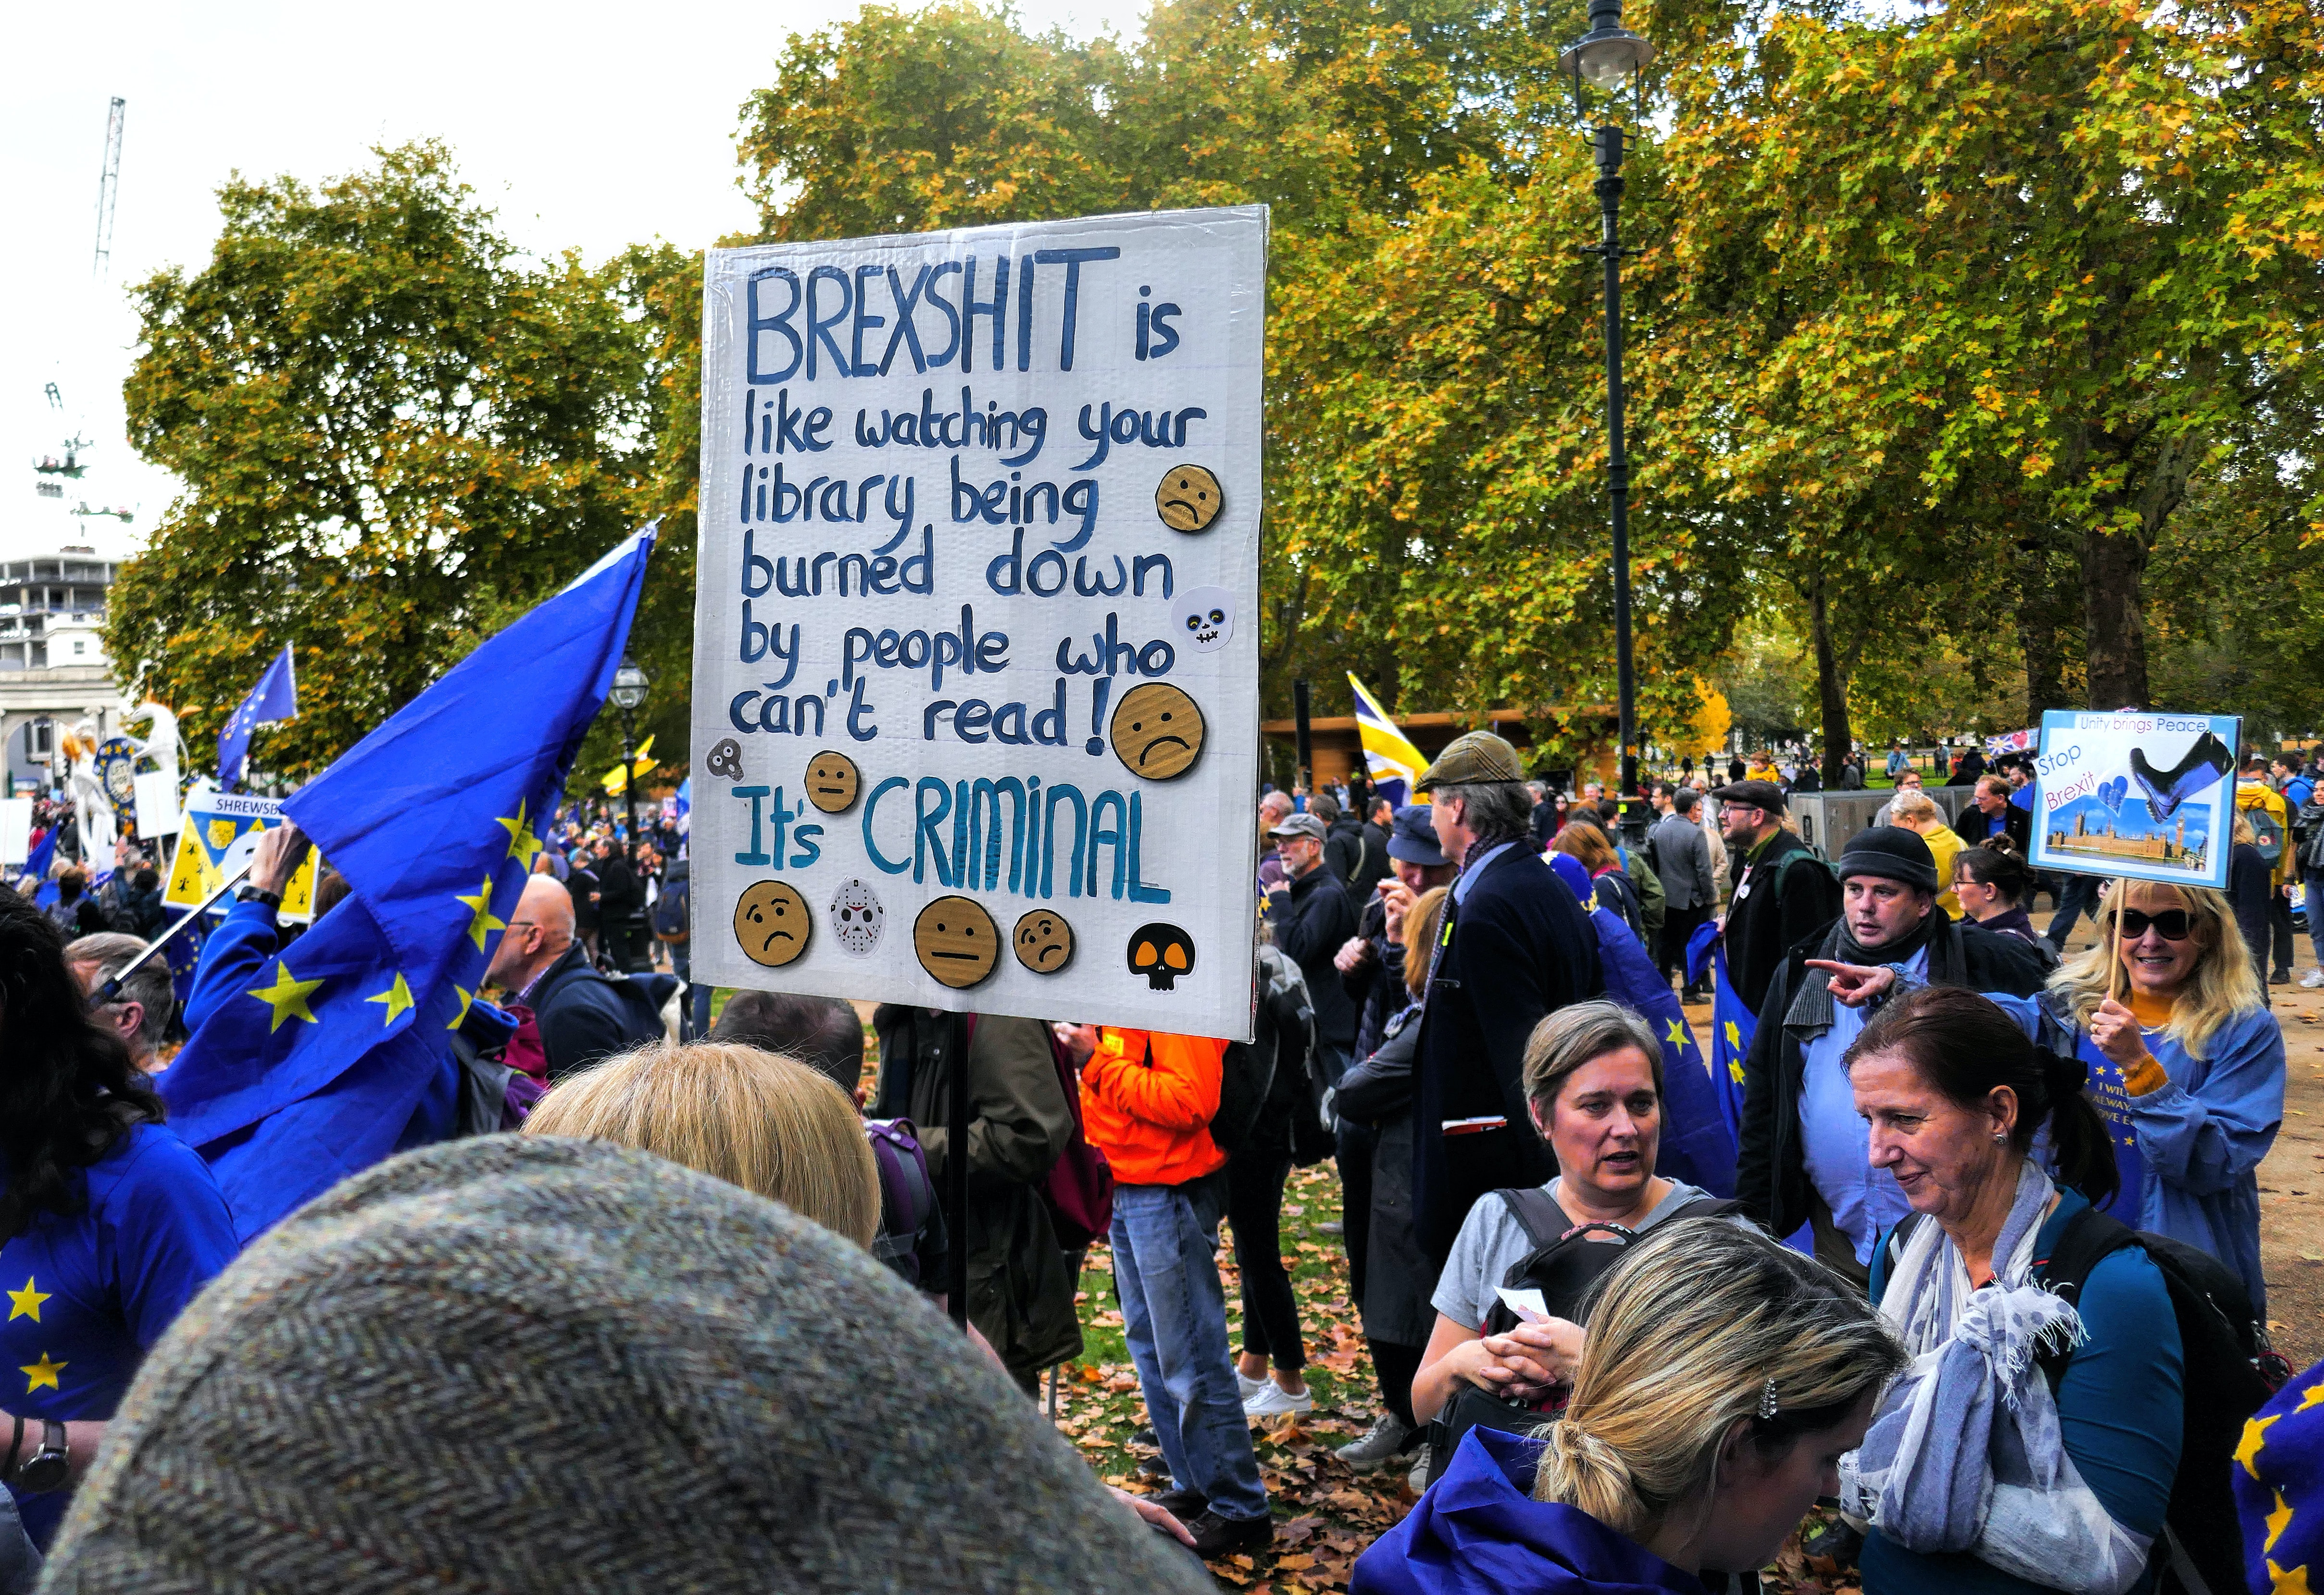 BREXSHIT is
like watching your
library being
burned down
by people who
can't read!
It's CRIMINAL
SHREWSB
Unity brings Peace
Stop
Brexit
I WILL
ALWAY
OVE E